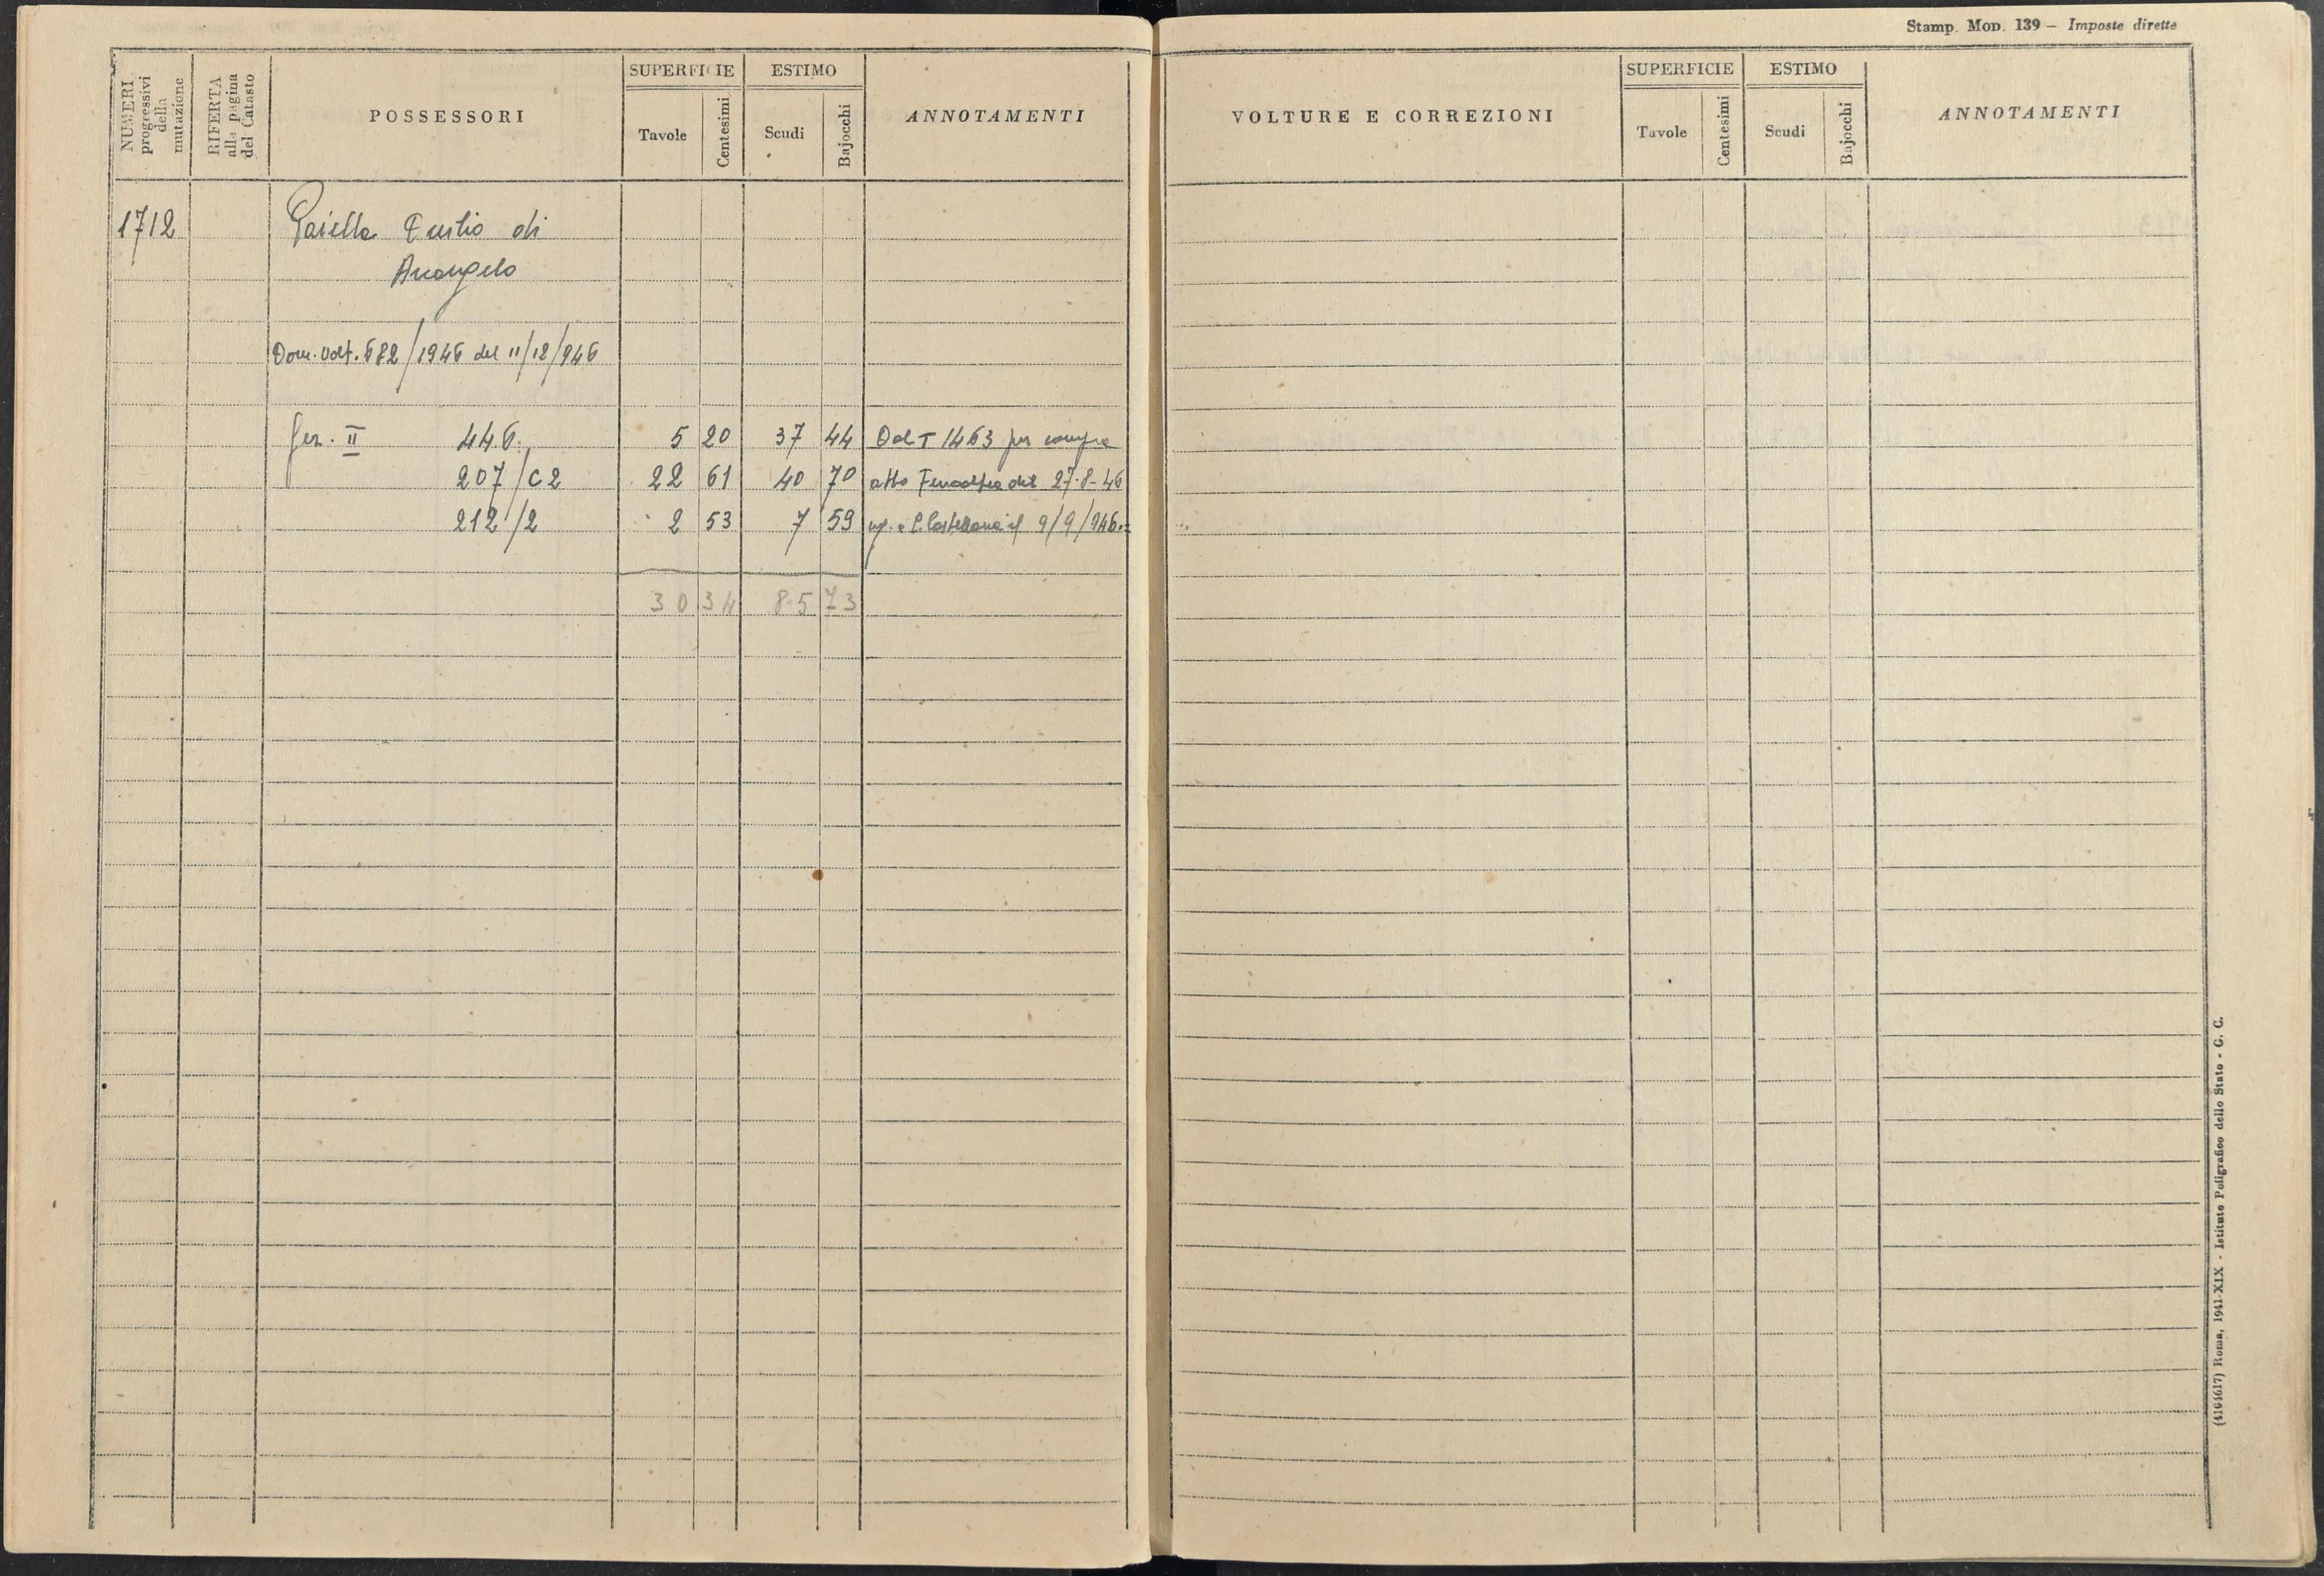 Stamp. Mod. 139 – Imposte dirette
NUMERI progressivi della mutazione
RIFERTA alla pagina del Catasto
POSSESSORI
SUPERFICIE
Tavole
Centesimi
ESTIMO
Scudi
Bajocchi
ANNOTAMENTI
VOLTURE E CORREZIONI
SUPERFICIE
Tavole
Centesimi
ESTIMO
Scudi
Bajocchi
ANNOTAMENTI
1712 di
Arcangelo
Dom. volt. 682/1946 del 11/12/946
Sez. II 446 5 20 37 44 Dal T 1463 per compra
207/C2 22 61 40 70 atto del 27-8-46
212/2 2 53 7 59 C. Castellana il 9/9/946
30 34 85 73
(4164617) Roma, 1941-XIX - Istituto Poligrafico dello Stato - G. C.